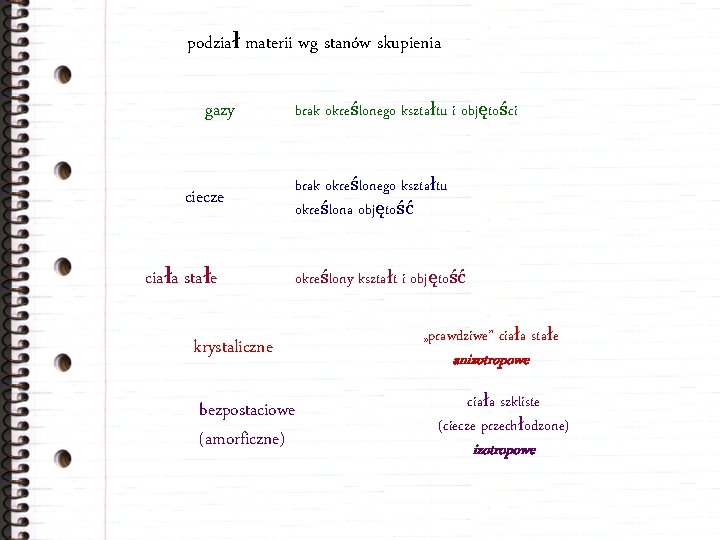 podział materii wg stanów skupienia
gazy
brak określonego kształtu i objętości
ciecze
brak określonego kształtu
określona objętość
ciała stałe
określony kształt i objętość
krystaliczne
„prawdziwe” ciała stałe
anizotropowe
bezpostaciowe
(amorficzne)
ciała szkliste
(ciecze przechłodzone)
izotropowe